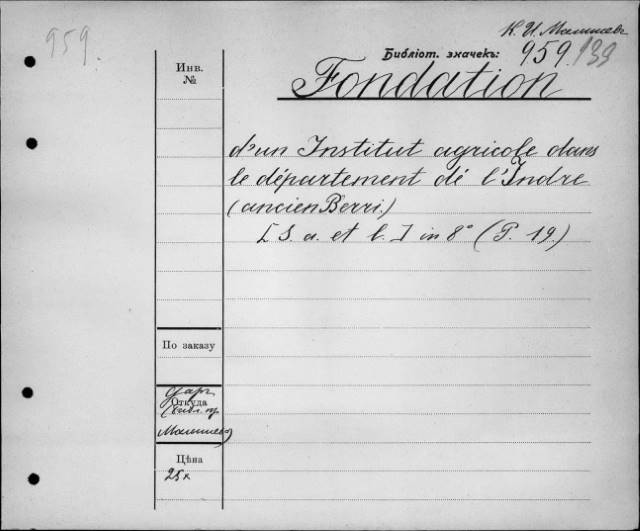 959.
К. И. Малышев
Библіот. значекъ: 959. 139
Инв. №
Fondation
d'un Institut agricole dans
le département dé l'Indre
(ancien Berri.)
[S. a. et l.] in 8° (P. 19.)
По заказу
Откуда
Малышев)
Цѣна
25к